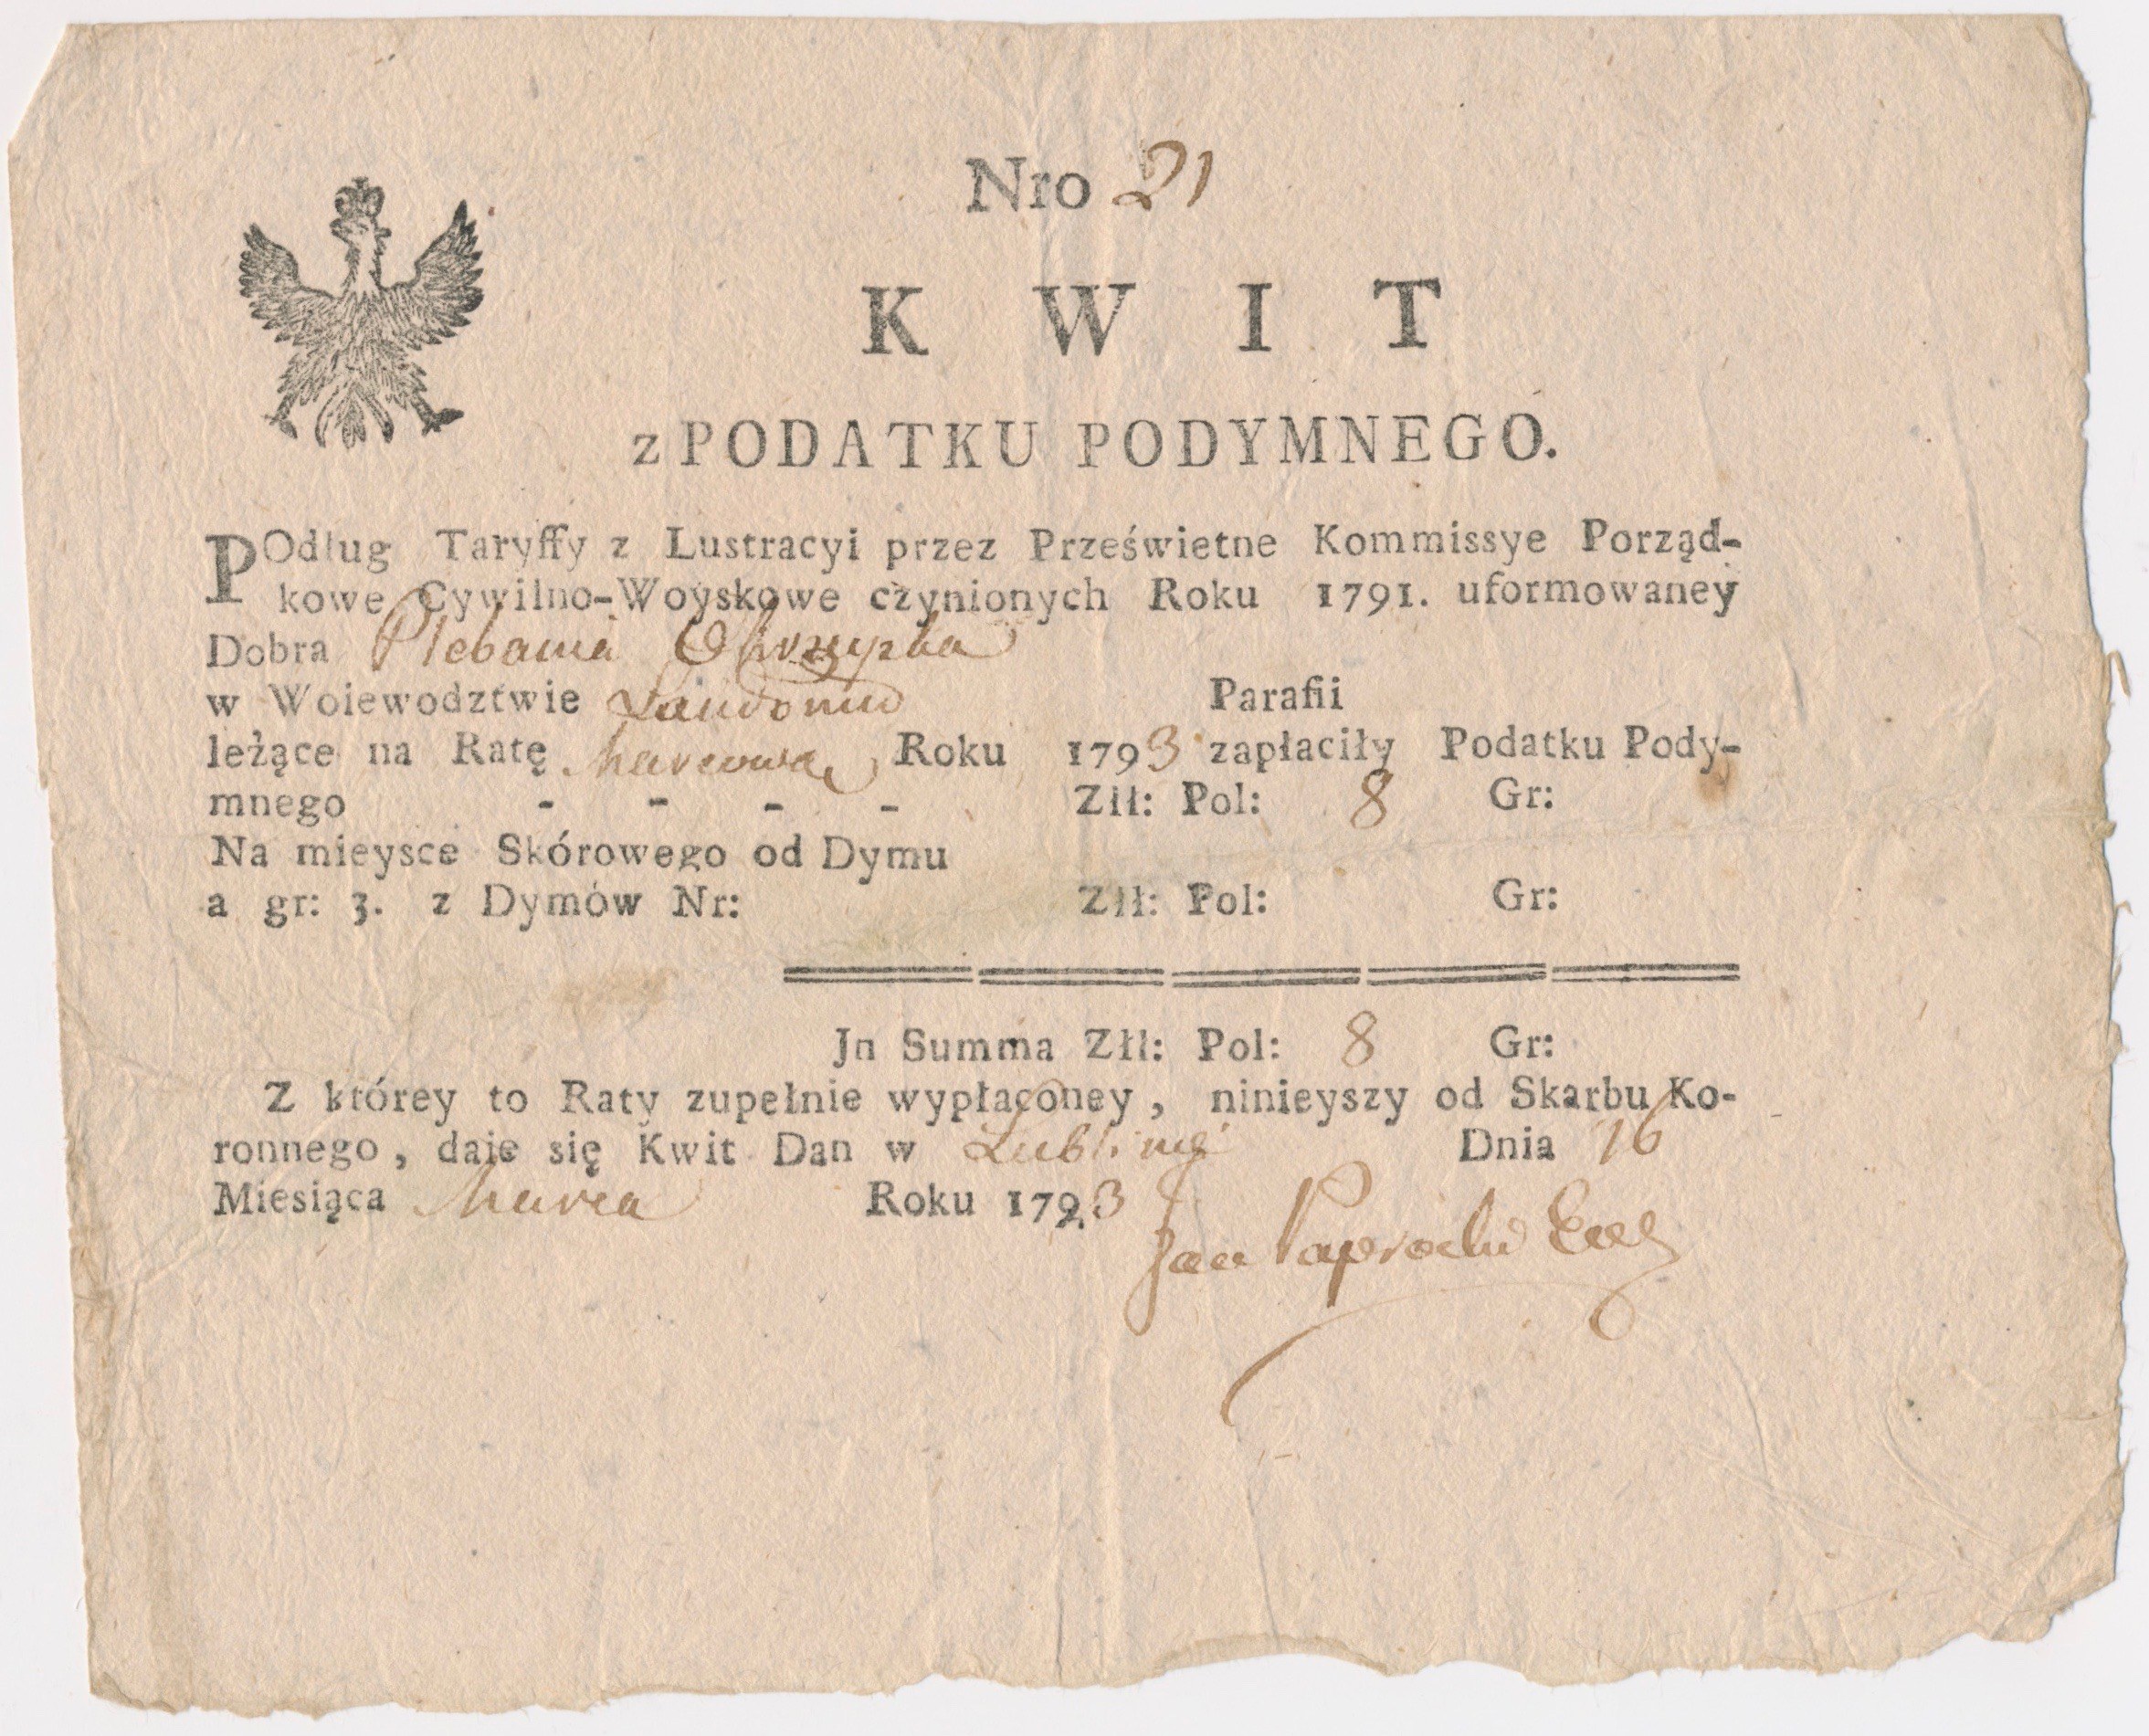 Nro 21
K W I T
z PODATKU PODYMNEGO.
POdług Taryffy z Lustracyi przez Prześwietne Kommissye Porząd-
kowe Cywilno-Woyskowe czynionych Roku 1791. uformowaney
Dobra Plebania
w Woiewodztwie Parafii
leżące na Ratę Marcową Roku 1793 zapłaciły Podatku Pody-
mnego - - - - Złł: Pol: 8 Gr:
Na mieysce Skórowego od Dymu
a gr: 3. z Dymów Nr: Złł: Pol: Gr:
Jn Summa Złł: Pol: 8 Gr:
Z którey to Raty zupełnie wypłaconey, ninieyszy od Skarbu Ko-
ronnego, daie się Kwit Dan w Lublinie Dnia 16
Miesiąca Marca Roku 1793
Jan Paprocki